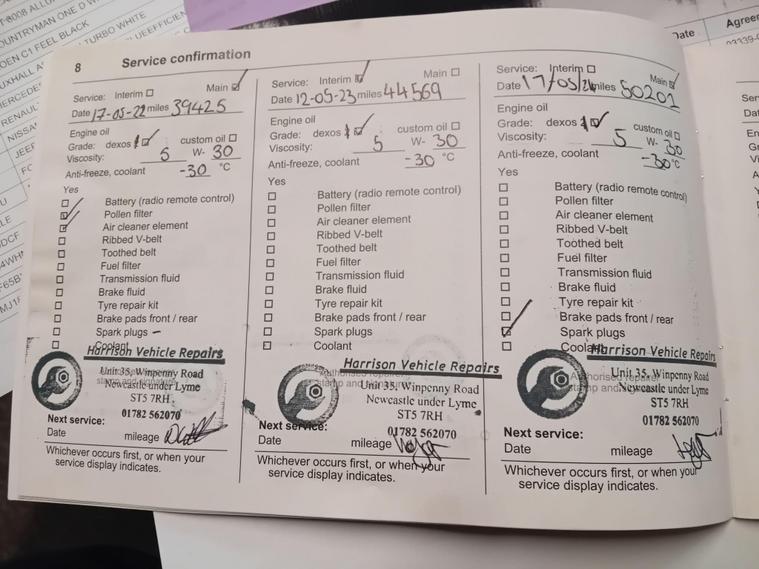 8 Service confirmation
Service: Interim Main
Date 17-05-22 miles 39425
Engine oil
Grade: dexos 1 custom oil
Viscosity: 5 W- 30
Anti-freeze, coolant -30 °C
Yes
Battery (radio remote control)
Pollen filter
Air cleaner element
Ribbed V-belt
Toothed belt
Fuel filter
Transmission fluid
Brake fluid
Tyre repair kit
Brake pads front / rear
Spark plugs –
Coolant
Harrison Vehicle Repairs
Unit 35, Winpenny Road
Newcastle under Lyme
ST5 7RH
01782 562070
Next service:
Date mileage
Whichever occurs first, or when your
service display indicates.
Service: Interim Main
Date 12-05-23 miles 44569
Engine oil
Grade: dexos 1 custom oil
Viscosity: 5 W- 30
Anti-freeze, coolant -30 °C
Yes
Battery (radio remote control)
Pollen filter
Air cleaner element
Ribbed V-belt
Toothed belt
Fuel filter
Transmission fluid
Brake fluid
Tyre repair kit
Brake pads front / rear
Spark plugs
Coolant
Harrison Vehicle Repairs
Unit 35, Winpenny Road
Newcastle under Lyme
ST5 7RH
01782 562070
Next service:
Date mileage
Whichever occurs first, or when your
service display indicates.
Service: Interim Main
Date 17/05/24 miles 50201
Engine oil
Grade: dexos 1 custom oil
Viscosity: 5 W- 30
Anti-freeze, coolant -30°C
Yes
Battery (radio remote control)
Pollen filter
Air cleaner element
Ribbed V-belt
Toothed belt
Fuel filter
Transmission fluid
Brake fluid
Tyre repair kit
Brake pads front / rear
Spark plugs
Coolant
Harrison Vehicle Repairs
Authorised repairer
stamp and
Unit 35, Winpenny Road
Newcastle under Lyme
ST5 7RH
01782 562070
Next service:
Date mileage
Whichever occurs first, or when your
service display indicates.
Date